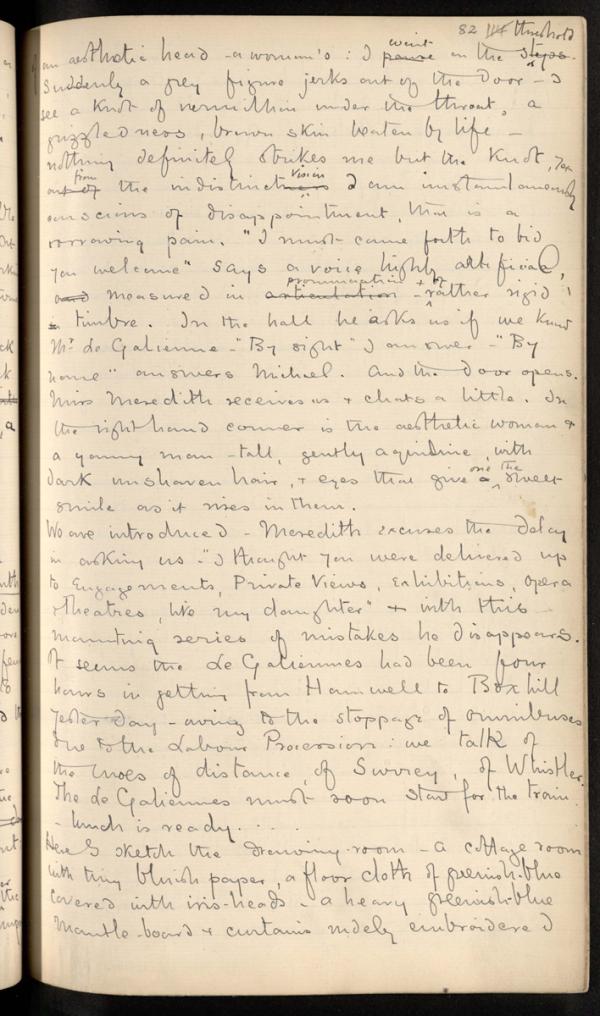 82 threshold
an aesthetic head - a woman's : I pause went on the steps.
Suddenly a grey figure jerks out of the door - I
see a knot of vermilion under the throat, a
grizzledness, brown skin beaten by life -
nothing definitely strikes me but the knot, yet
out of from the indistinctness vision I am instantaneously
conscious of disappointment, that is a
sorrowing pain. "I must come forth to bid
you welcome" says a voice highly artificial,
and measured in articulation pronunciation + rather rigid
in timbre. In the hall he asks us if we know
Mr. Le Galienne - "By sight" I answer - "By
name" answers Michael. And the door opens.
Miss Meredith receives us + chats a little. In
the right hand corner is the aesthetic woman +
a young man - tall, gently aquiline, with
dark unshaven hair, + eyes that give a one the sweet
smile as it rises in them.
We are introduced - Meredith excuses the delay
in asking us - "I thought you were delivered up
to Engagements, Private Views, Exhibitions, Opera
+ theatres, like my daughter" + with this
mounting series of mistakes he disappears.
It seems the Le Galiennes had been four
hours in getting from Hanwell to Boxhill
yesterday - owing to the stoppage of omnibuses
due to the Labour Procession : we talk of
the woes of distance, of Surrey, of Whistler.
The Le Galiennes must soon start for the train
- lunch is ready. . . . .
Here I sketch the drawing-room - a cottage room
with tiny bluish paper, a floor cloth of greenish-blue
covered with iris-heads - a heavy greenish-blue
mantle-board + curtains widely embroidered